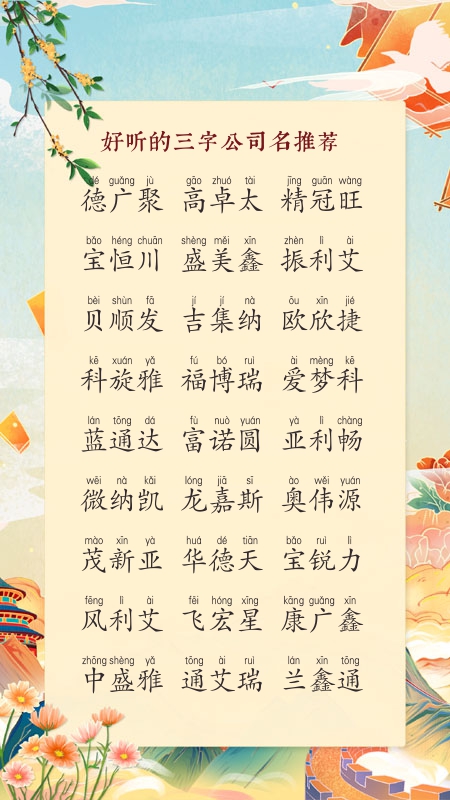 好听的三字公司名推荐
dé guǎng jù gāo zhuó tài jīng guān wàng
德广聚 高卓太 精冠旺
bǎo héng chuān shèng měi xīn zhèn lì ài
宝恒川 盛美鑫 振利艾
bèi shùn fā jí jí nà ōu xīn jié
贝顺发 吉集纳 欧欣捷
kē xuán yǎ fú bó ruì ài mèng kē
科旋雅 福博瑞 爱梦科
lán tōng dá fù nuò yuán yà lì chàng
蓝通达 富诺圆 亚利畅
wēi nà kǎi lóng jiā sī ào wěi yuán
微纳凯 龙嘉斯 奥伟源
mào xīn yà huá dé tiān bǎo ruì lì
茂新亚 华德天 宝锐力
fēng lì ài fēi hóng xīng kāng guǎng xīn
风利艾 飞宏星 康广鑫
zhōng shèng yǎ tōng ài ruì lán xīn tōng
中盛雅 通艾瑞 兰鑫通